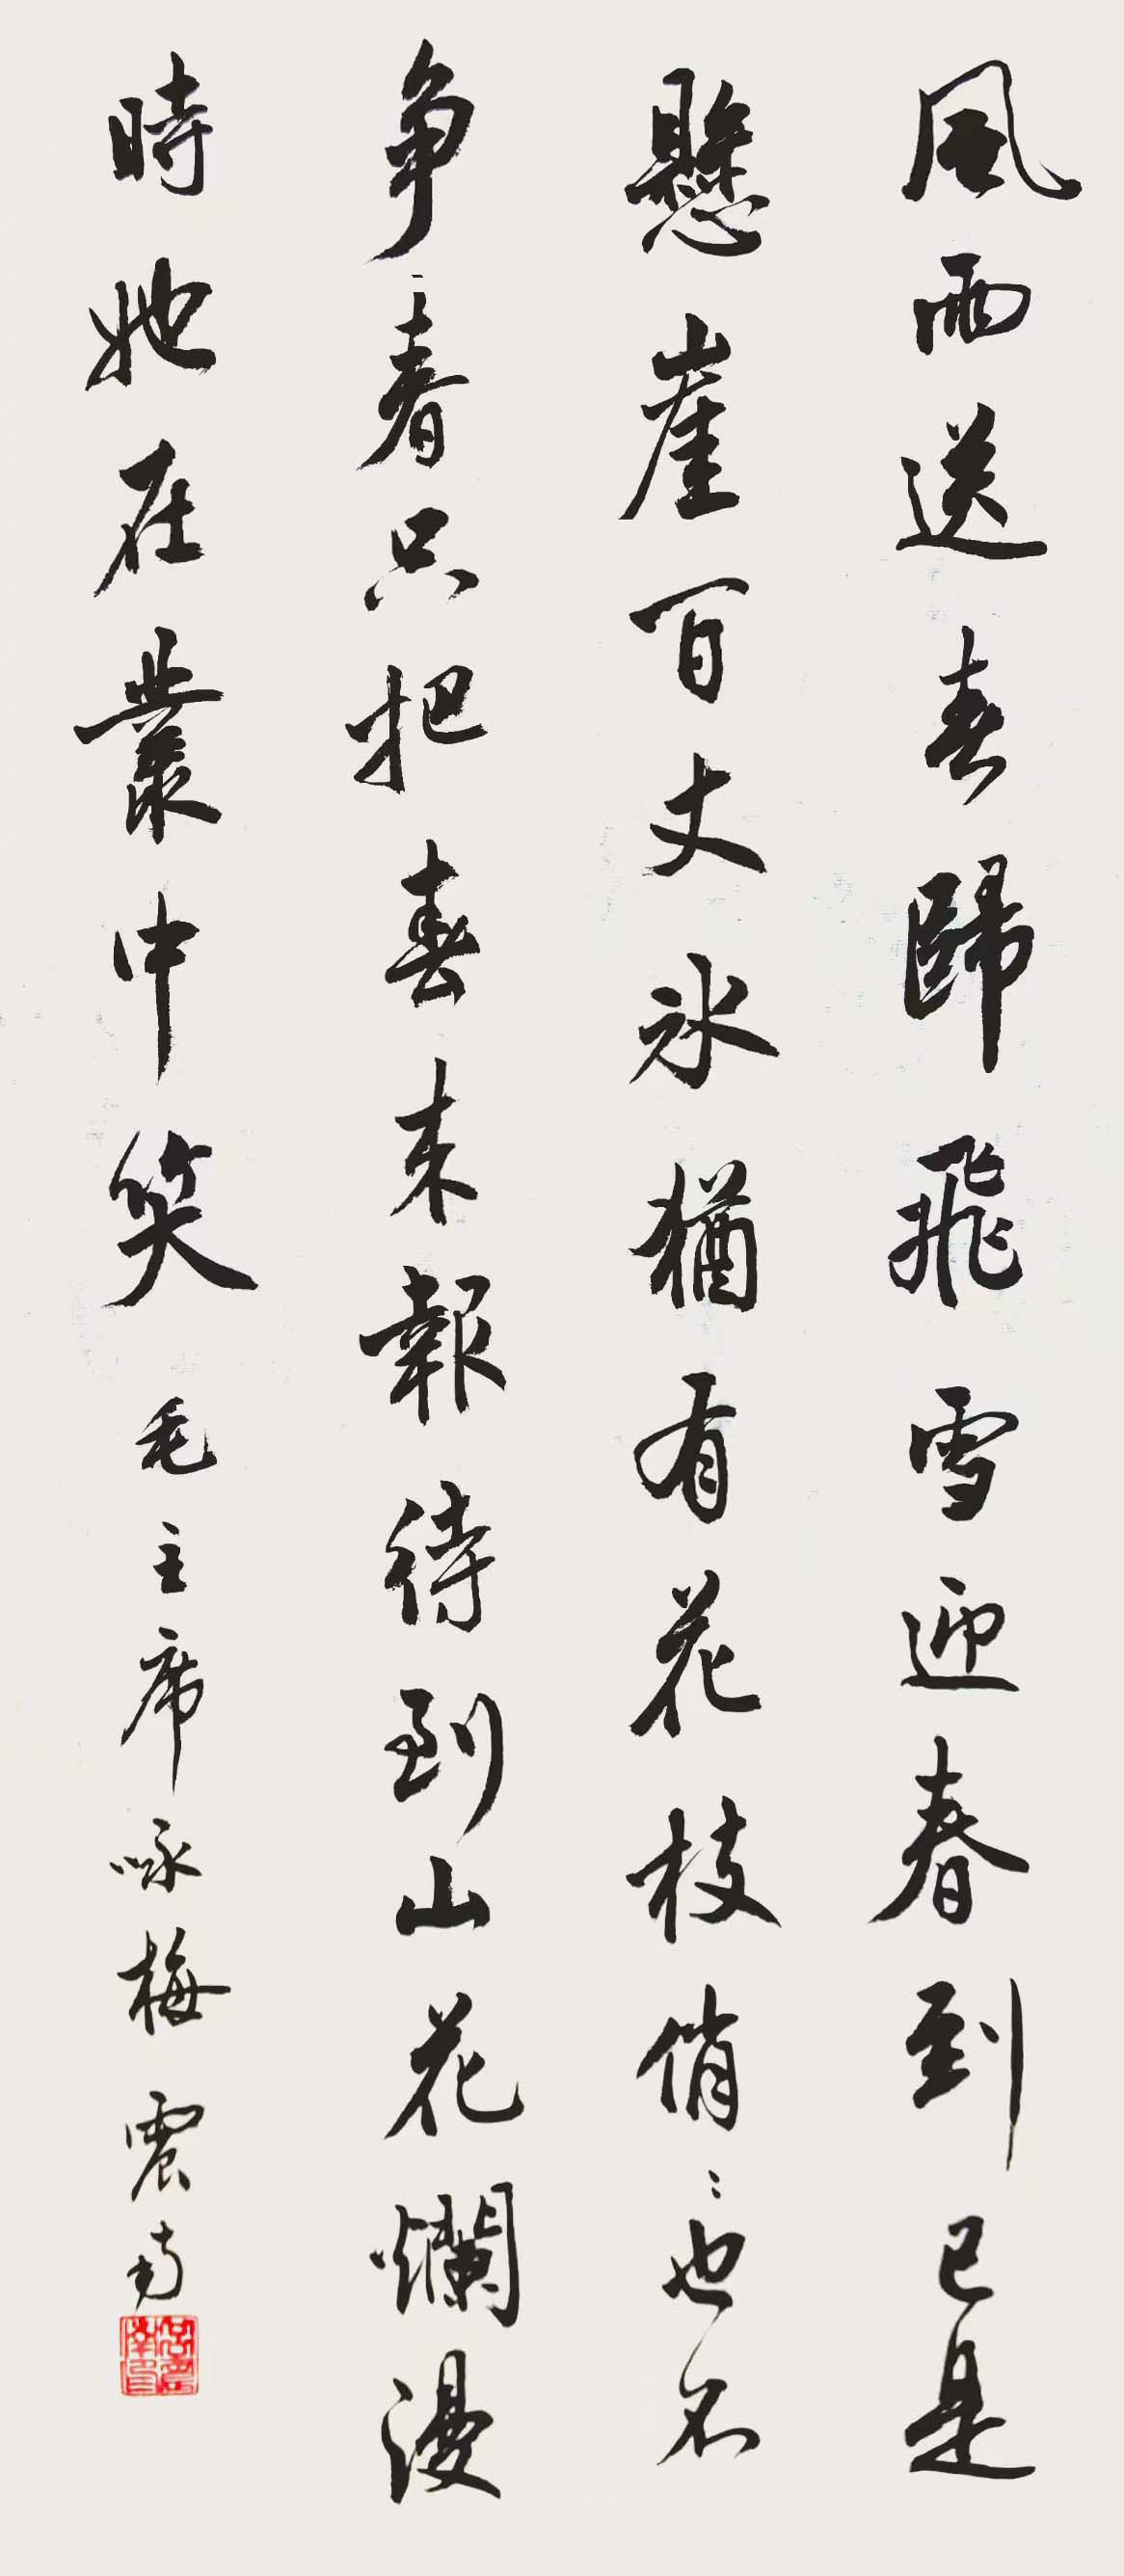 風雨送春歸飛雪迎春到已是
懸崖百丈冰猶有花枝俏〻也不
争春只把春來報待到山花爛漫
時她在叢中笑 毛主席咏梅 震南